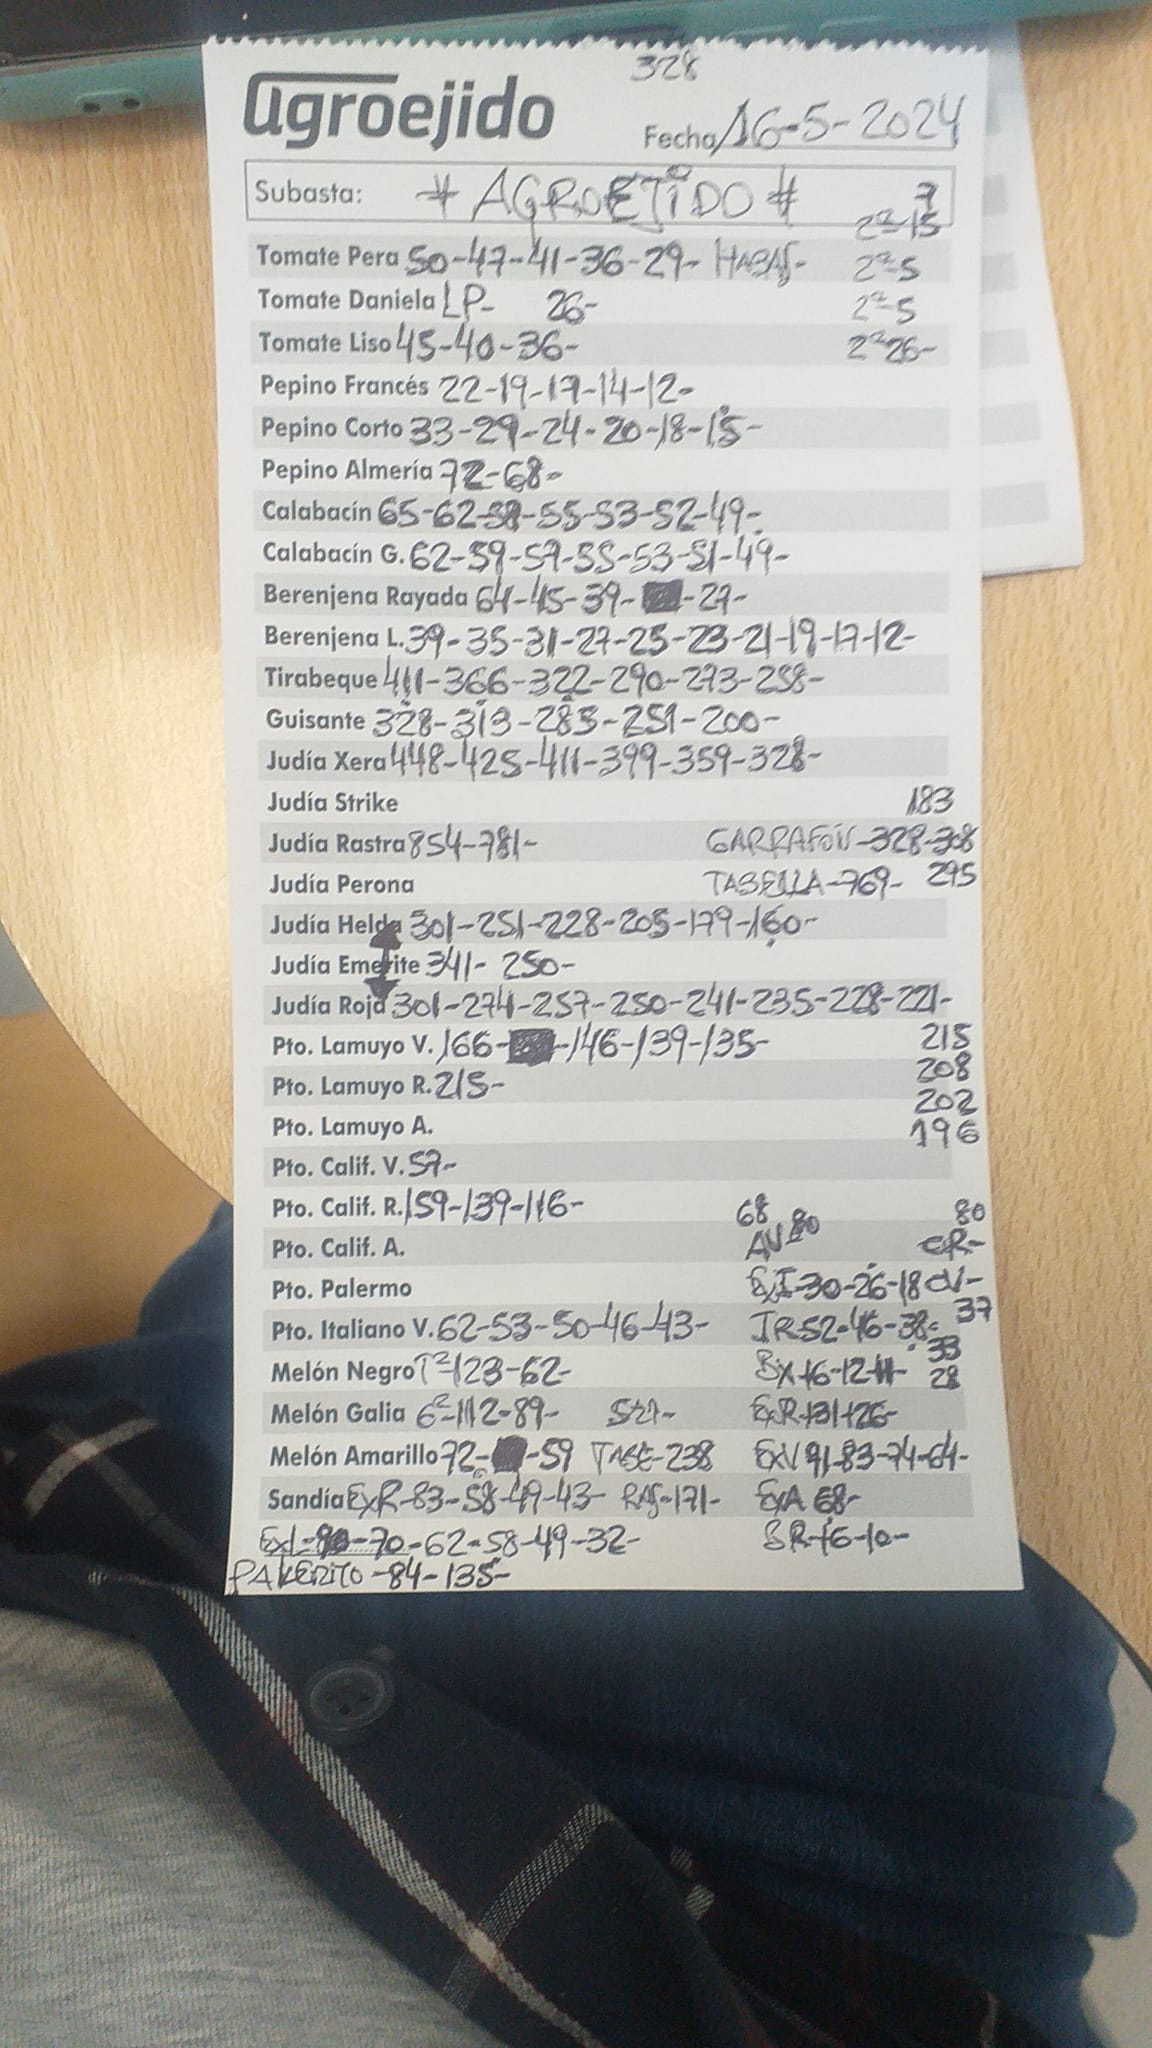 328
agroejido
Fecha 16-5-2024
Subasta: # AGROEJIDO # 7
2ª-15
Tomate Pera 50-47-41-36-29- HABAS- 2ª-5
Tomate Daniela LP- 26- 2ª-5
Tomate Liso 45-40-36- 2ª26-
Pepino Francés 22-19-17-14-12-
Pepino Corto 33-29-24-20-18-15-
Pepino Almería 72-68-
Calabacín 65-62-58-55-53-52-49-
Calabacín G. 62-59-57-55-53-51-49-
Berenjena Rayada 64-45-39- -27-
Berenjena L. 39-35-31-27-25-23-21-19-17-12-
Tirabeque 411-366-322-290-273-258-
Guisante 328-313-283-251-200-
Judía Xera 448-425-411-399-359-328-
Judía Strike 183
Judía Rastra 854-781- GARRAFÓN-328-308
Judía Perona TABELLA-769- 295
Judía Helda 301-251-228-205-179-160-
Judía Emerite 341- 250-
Judía Roja 301-274-257-250-241-235-228-221-
Pto. Lamuyo V. 166- -146-139-135- 215
Pto. Lamuyo R. 215- 208
202
Pto. Lamuyo A. 196
Pto. Calif. V. 57-
Pto. Calif. R. 159-139-116- 68 80
Pto. Calif. A. AV 80 CR-
Pto. Palermo ExI-30-26-18 CV-
Pto. Italiano V. 62-53-50-46-43- JR52-46-38- 37
33
Melón Negro T²-123-62- BX-16-12-11- 28
Melón Galia 6²-112-89- S21- ExR-131-126-
Melón Amarillo 72- -59 TASE-238 ExV 91-83-74-64-
Sandía ExR-83-58-49-43- RAS-171- ExA 68-
ExL- -70-62-58-49-32- BR-16-10-
PAKERITO-84-135-